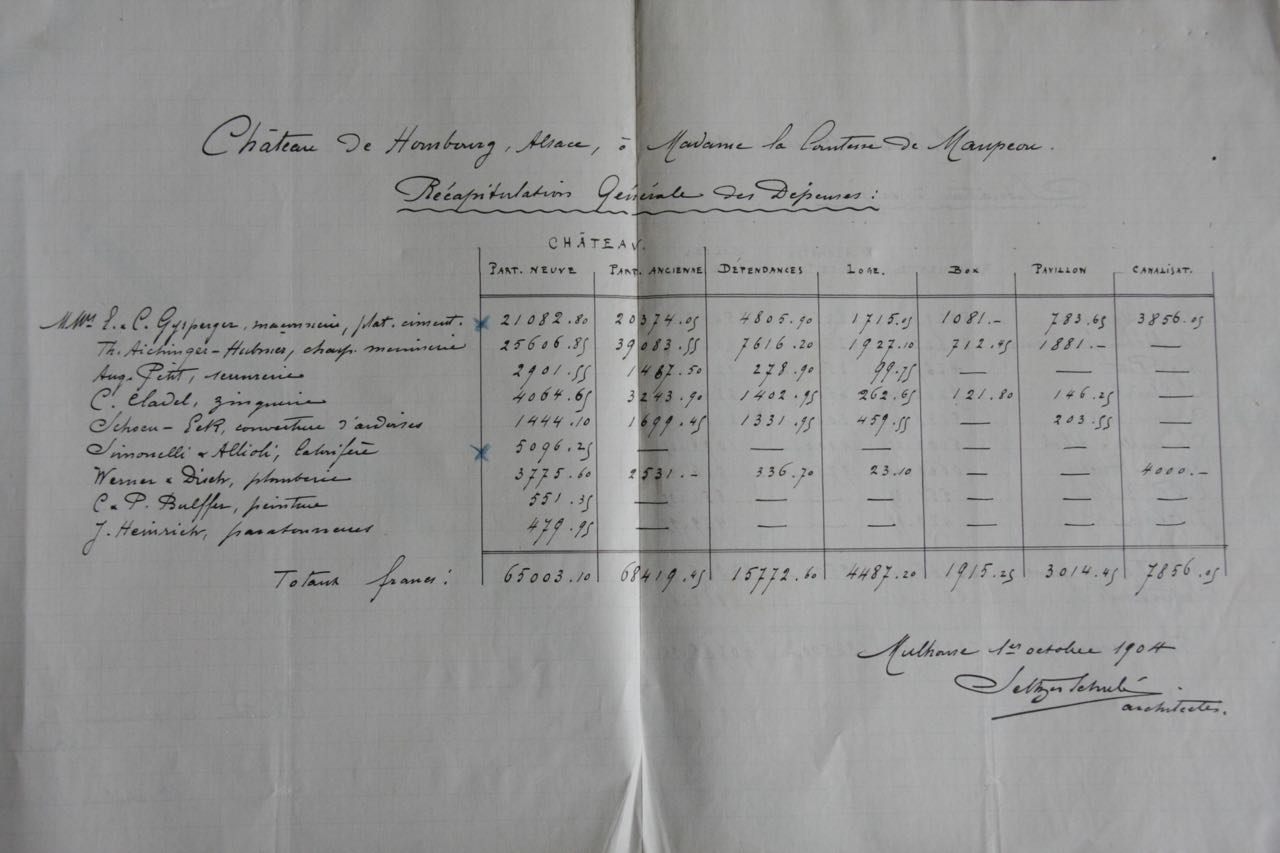 Château de Hombourg, Alsace, à Madame la Comtesse de Maupeou.
Récapitulation Générale des Dépenses:
CHÂTEAU.
PART. NEUVE PART. ANCIENNE DÉPENDANCES LOGE. BOX PAVILLON CANALISAT.
MMrs E. & C. Gysperger, maçonnerie, plat. ciment. 21082.80 20374.05 4805.90 1715.05 1081.- 783.65 3856.05
Th. Aichinger-Hubner, charp. menuiserie 25606.85 39083.55 7616.20 1927.10 712.45 1881.- —
Aug. Petit, serrurerie 2901.55 1487.50 278.90 99.75 — — —
C. Cladel, zinguerie 4064.65 3243.90 1402.95 262.65 121.80 146.25 —
Schoen-Eck, couverture d'ardoises 1444.10 1699.45 1331.95 459.55 — 203.55 —
Simonelli & Allioli, calorifère 5096.25 — — — — — —
Werner & Disch, plomberie 3775.60 2531.- 336.70 23.10 — — 4000.-
C. & P. Bulffer, peinture 551.35 — — — — — —
J. Heinrich, paratonnerres 479.95 — — — — — —
Totaux francs: 65003.10 68419.45 15772.60 4487.20 1915.25 3014.45 7856.05
Mulhouse 1er octobre 1904
architectes.